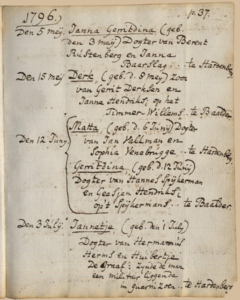 1796.
p. 37.
Den 5 meij Janna Gerredina (geb.
den 3 maij) Dogter van Berent
Rustenberg en Janna
Baerslag .. te Hardenberg
Den 15 meij Derk (geb. d. 8 meij) zoon
van Gerrit Derksen en
Janna Hendriks, op het
Timmer-Willems .. te Baalder
Matta (geb. d. 6 Junij) Dogter
van Jan Veltman en
Den 12 Junij
Sophia Venebrugge .. te Hardenberg
Gerredina (geb. d. 12 Junij)
Dogter van Hannes Spijkerman
en Geesjen Hendriks,
op 't Spijkermans .. te Baalder
Den 3 Julij Jannetje (geb. den 1 Julij)
Dogter van Hermannus
Herms en Huibertje
De Graaf: zijnde de man
een militair liggende
in guarnizoen .. te Hardenberg